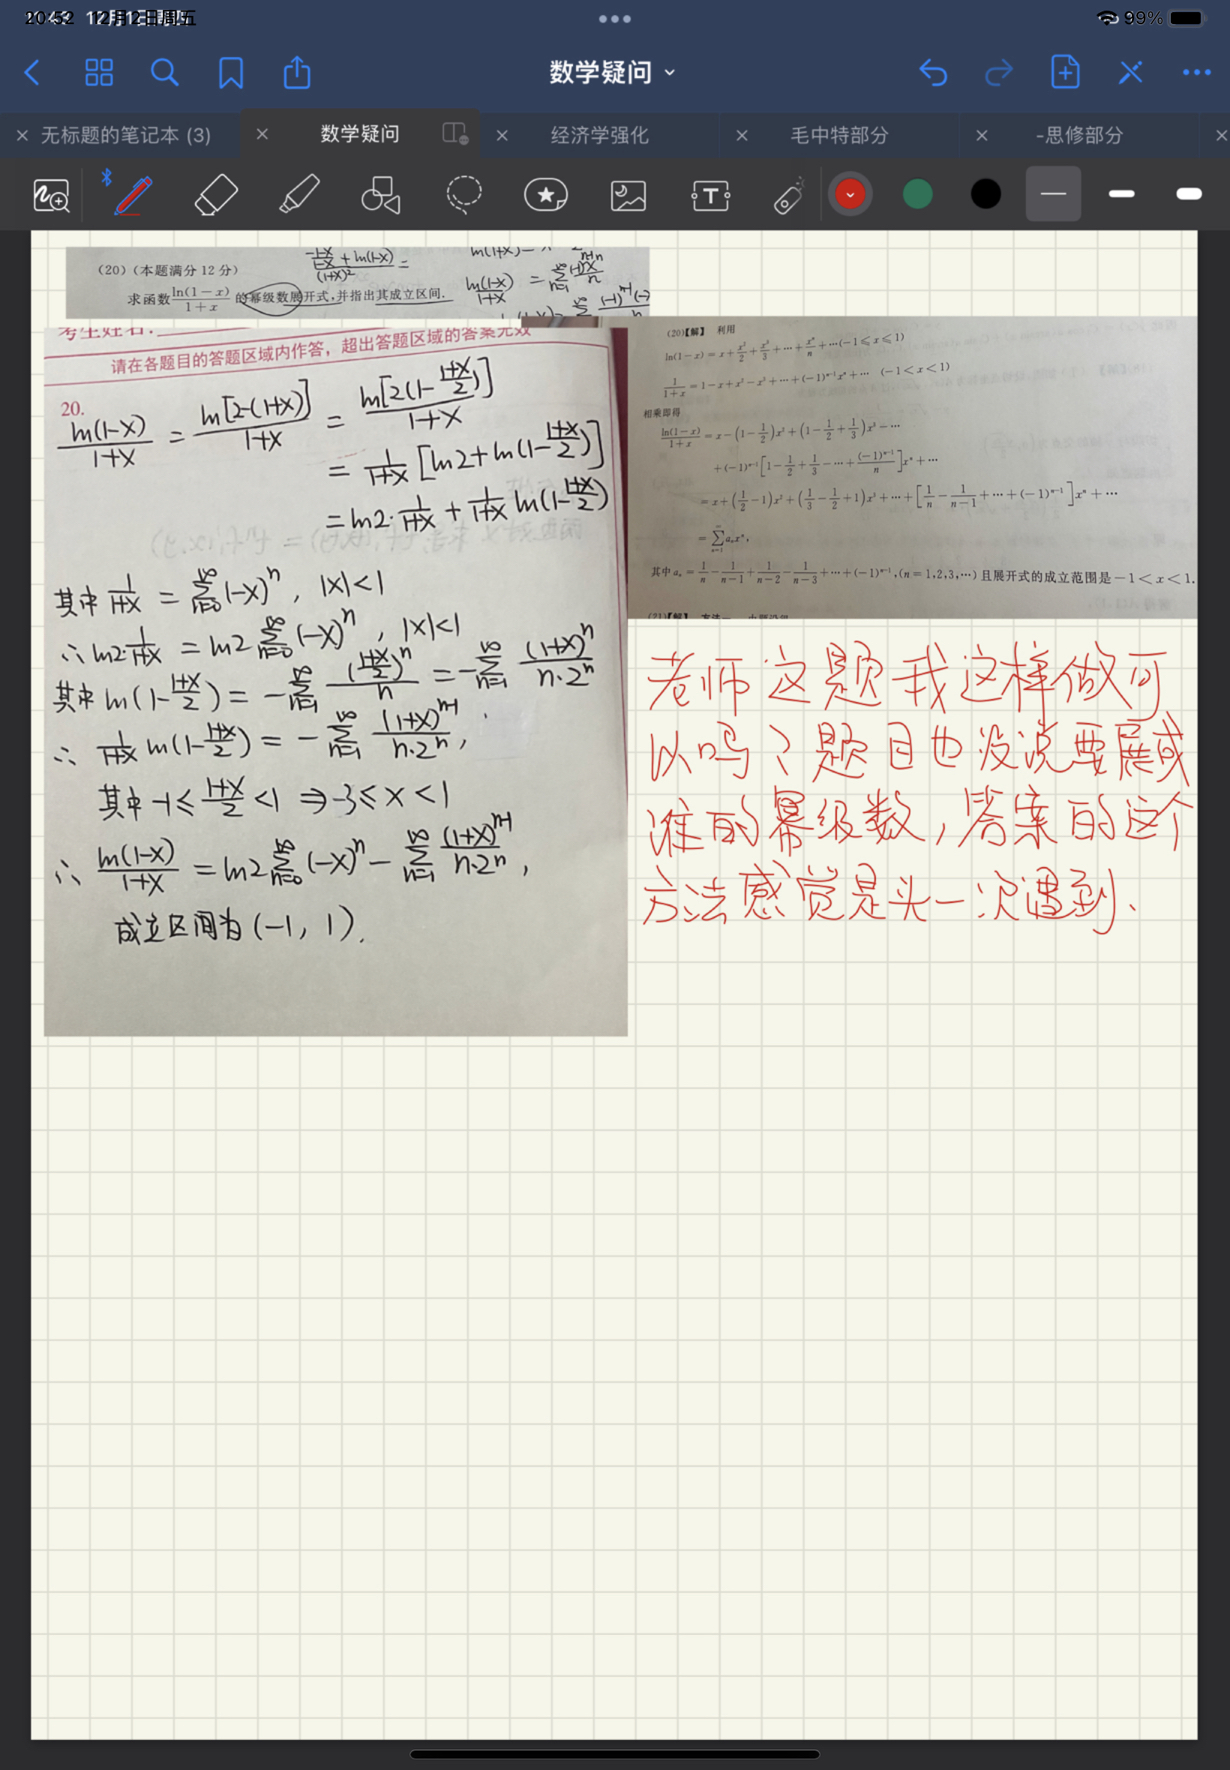 99%
数学疑问
无标题的笔记本 (3)
数学疑问
经济学强化
毛中特部分
-思修部分
(20)(本题满分 12 分)
求函数 ln(1-x)/(1+x) 的幂级数展开式,并指出其成立区间.
考生姓名:
请在各题目的答题区域内作答,超出答题区域的答案无效
20.
ln(1-x)/(1+x) = ln[2-(1+x)]/(1+x) = ln[2(1-(1+x)/2)]/(1+x)
= 1/(1+x) [ln2+ln(1-(1+x)/2)]
= ln2·1/(1+x) + 1/(1+x) ln(1-(1+x)/2)
其中 1/(1+x) = ∑_{n=0}^{∞} (-x)^n, |x|<1
∴ ln2·1/(1+x) = ln2 ∑_{n=0}^{∞} (-x)^n, |x|<1
其中 ln(1-(1+x)/2) = -∑_{n=1}^{∞} ((1+x)/2)^n/n = -∑_{n=1}^{∞} (1+x)^n/(n·2^n)
∴ 1/(1+x) ln(1-(1+x)/2) = -∑_{n=1}^{∞} (1+x)^{n-1}/(n·2^n),
其中 -1≤(1+x)/2<1 ⇒ -3≤x<1
∴ ln(1-x)/(1+x) = ln2 ∑_{n=0}^{∞} (-x)^n - ∑_{n=1}^{∞} (1+x)^{n-1}/(n·2^n),
成立区间为 (-1, 1).
(20)【解】 利用
ln(1-x)=x+x²/2+x³/3+…+xⁿ/n+…(-1≤x≤1)
1/(1+x)=1-x+x²-x³+…+(-1)^{n-1}xⁿ+… (-1<x<1)
相乘即得
ln(1-x)/(1+x)=x-(1-1/2)x²+(1-1/2+1/3)x³-…
+(-1)^{n-1}[1-1/2+1/3-…+(-1)^{n-1}/n]xⁿ+…
=x+(1/2-1)x²+(1/3-1/2+1)x³+…+[1/n-1/(n-1)+…+(-1)^{n-1}]xⁿ+…
=∑_{n=1}^{∞}aₙxⁿ,
其中 aₙ=1/n-1/(n-1)+1/(n-2)-1/(n-3)+…+(-1)^{n-1},(n=1,2,3,…)且展开式的成立范围是-1<x<1.
老师这题我这样做可
以吗?题目也没说要展成
谁的幂级数,答案的这个
方法感觉是头一次遇到.